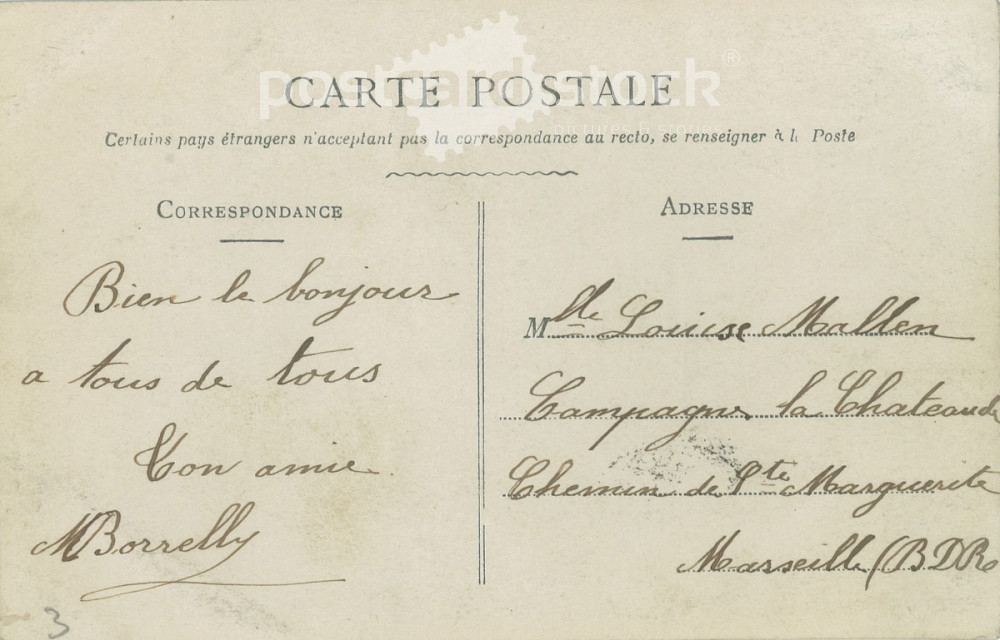 postcardstock®
CARTE POSTALE
Certains pays étrangers n'acceptant pas la correspondance au recto, se renseigner à la Poste
CORRESPONDANCE
Bien le bonjour
a tous de tous
Ton amie
MBorrelly
3
ADRESSE
Mlle Louise Mallen
Campagne la Chateaude
Chemin de Ste Marguerite
Marseille (BDR